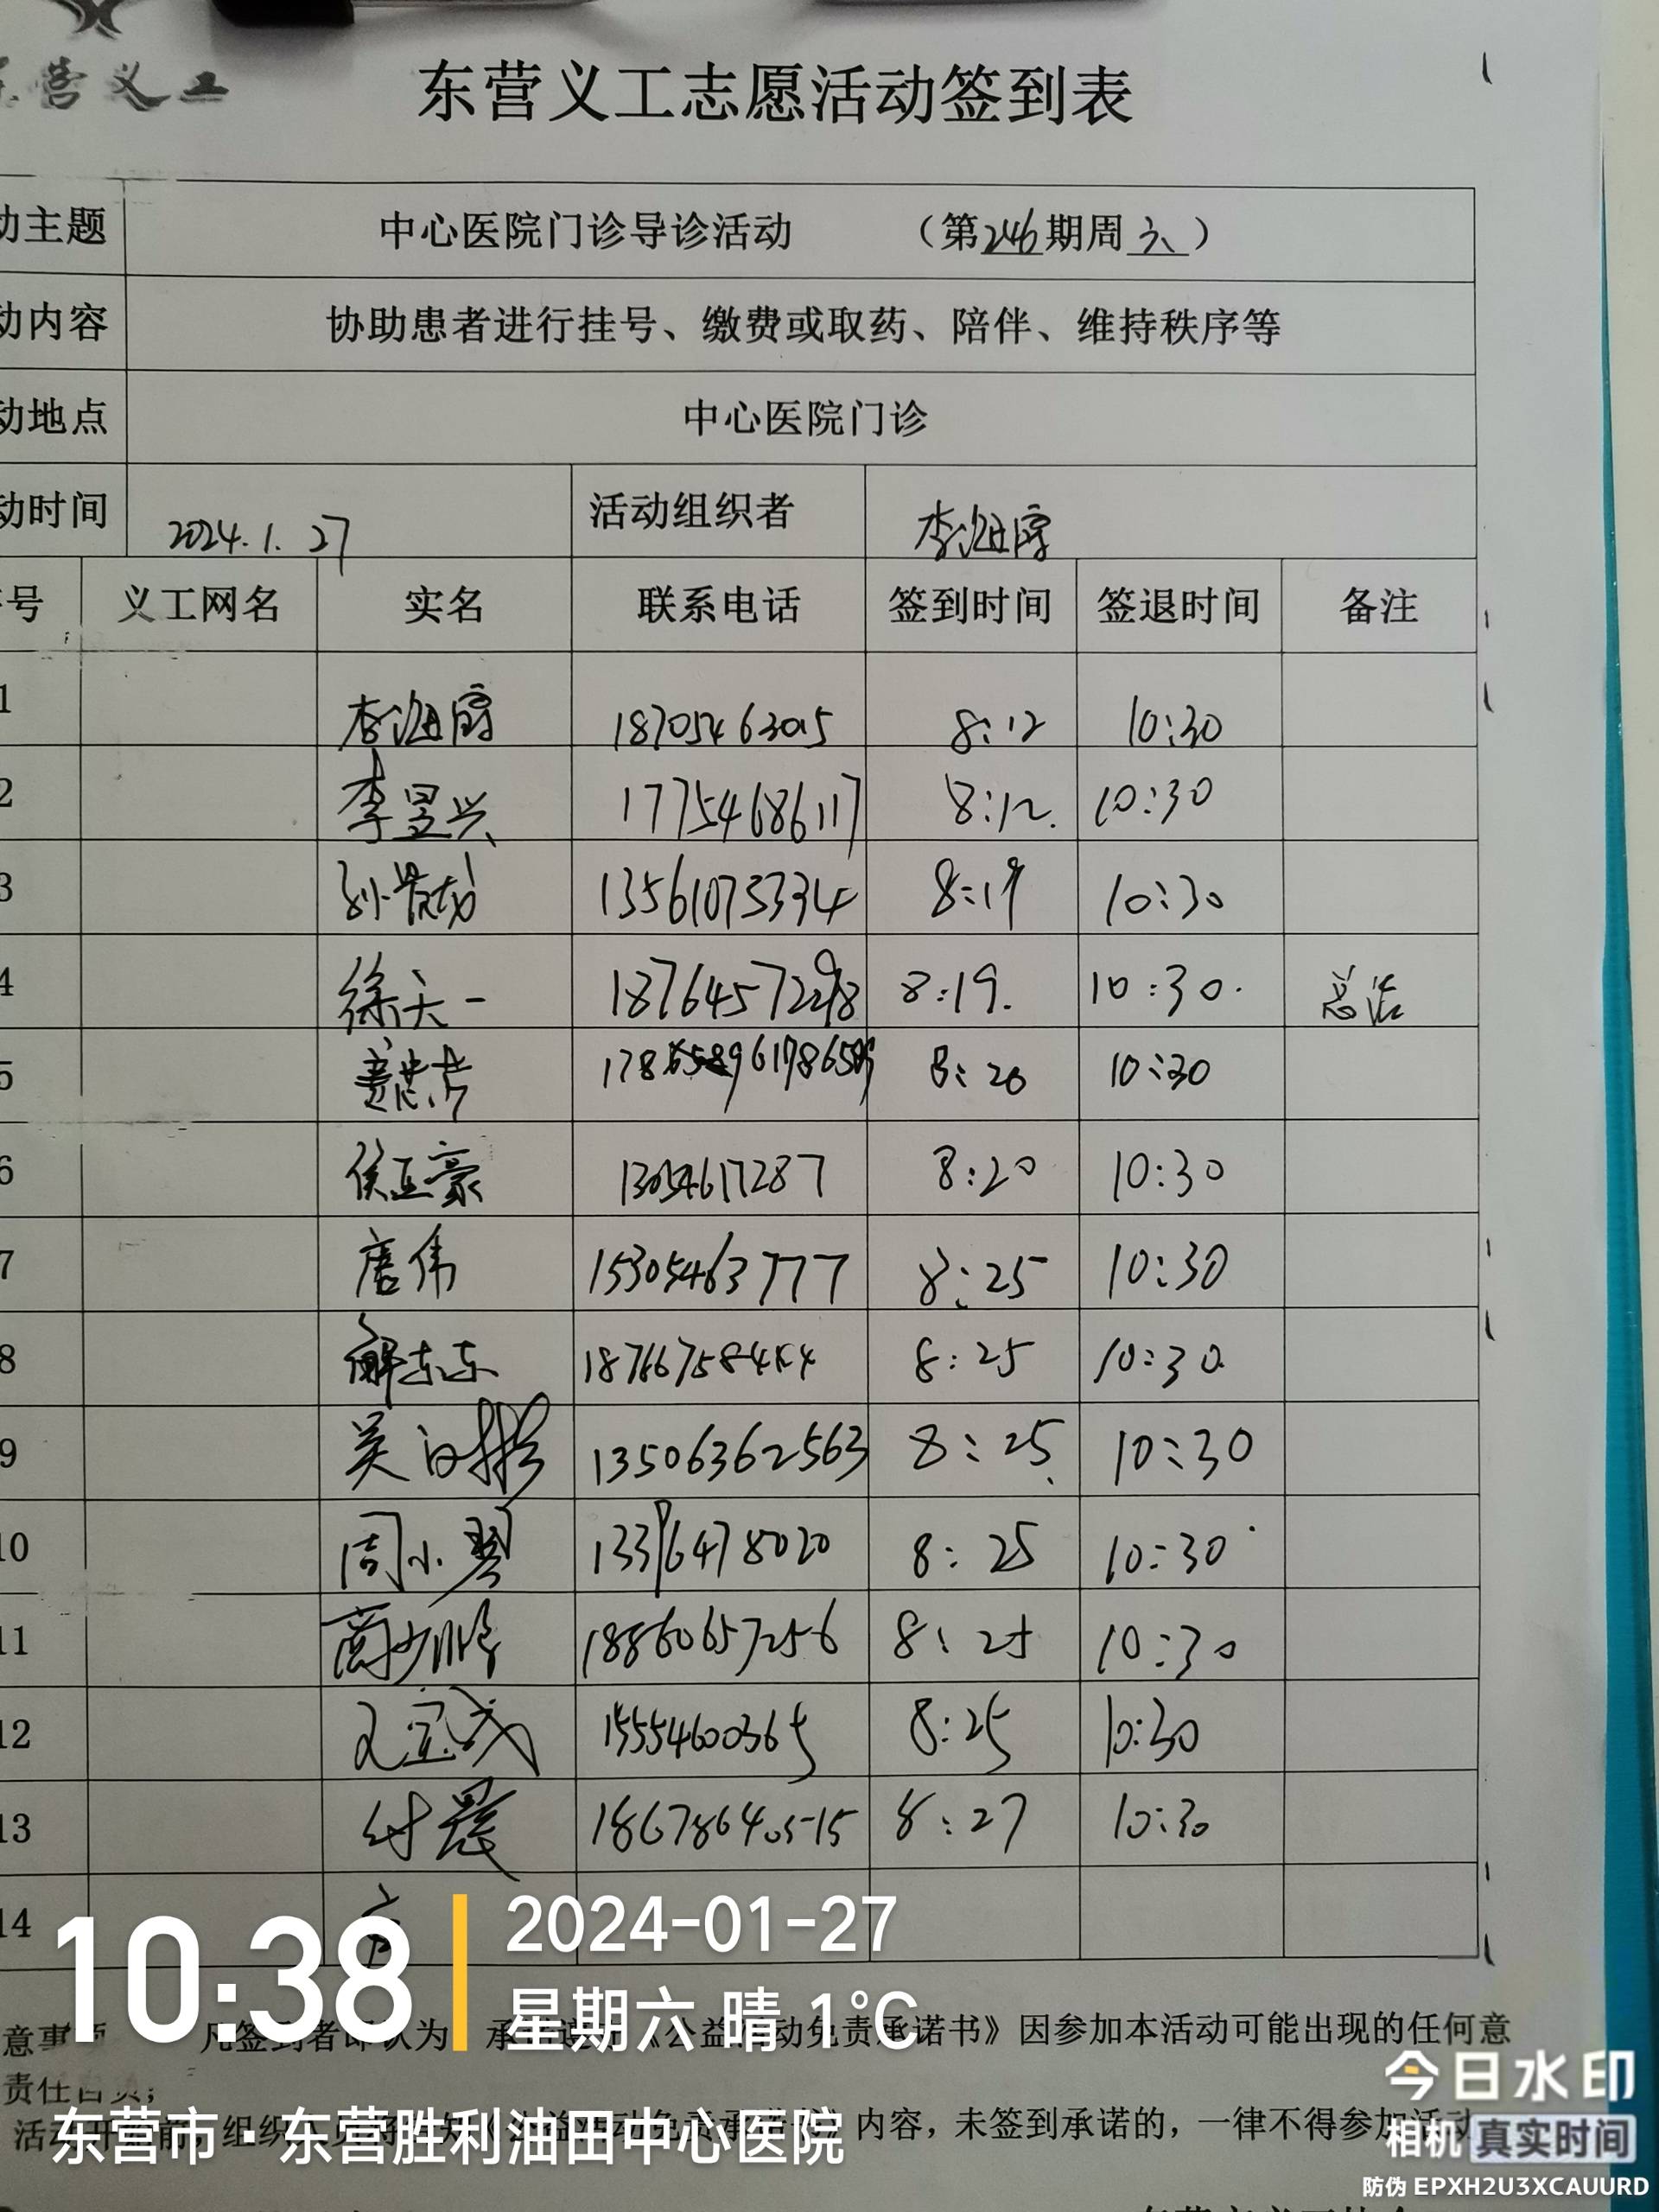 东营义工
东营义工志愿活动签到表
动主题 中心医院门诊导诊活动 （第246期周六）
动内容 协助患者进行挂号、缴费或取药、陪伴、维持秩序等
动地点 中心医院门诊
动时间 2024.1.27 活动组织者 李
号 义工网名 实名 联系电话 签到时间 签退时间 备注
1 李 18705463015 8:12 10:30
2 李昱兴 17754686117 8:12. 10:30
3 孙 13561075334 8:19 10:30
4 徐天一 8:19. 10:30. 总结
5 8:20 10:30
6 侯正豪 13054617287 8:20 10:30
7 唐伟 15305463777 8:25 10:30
8 解东东 8:25 10:30
9 吴 13506362563 8:25 10:30
10 周小琴 8:25 10:30
11 18860657256 8:25 10:30
12 15554600365 8:25 10:30
13 付晨 18678640515 8:27 10:30
14
10:38
2024-01-27
星期六 晴 1°C
意事项 凡签到者即认为 《公益活动免责承诺书》因参加本活动可能出现的任何意
责任自负；
活动 组织 内容，未签到承诺的，一律不得参加活动
东营市·东营胜利油田中心医院
今日水印
相机 真实时间
防伪 EPXH2U3XCAUURD